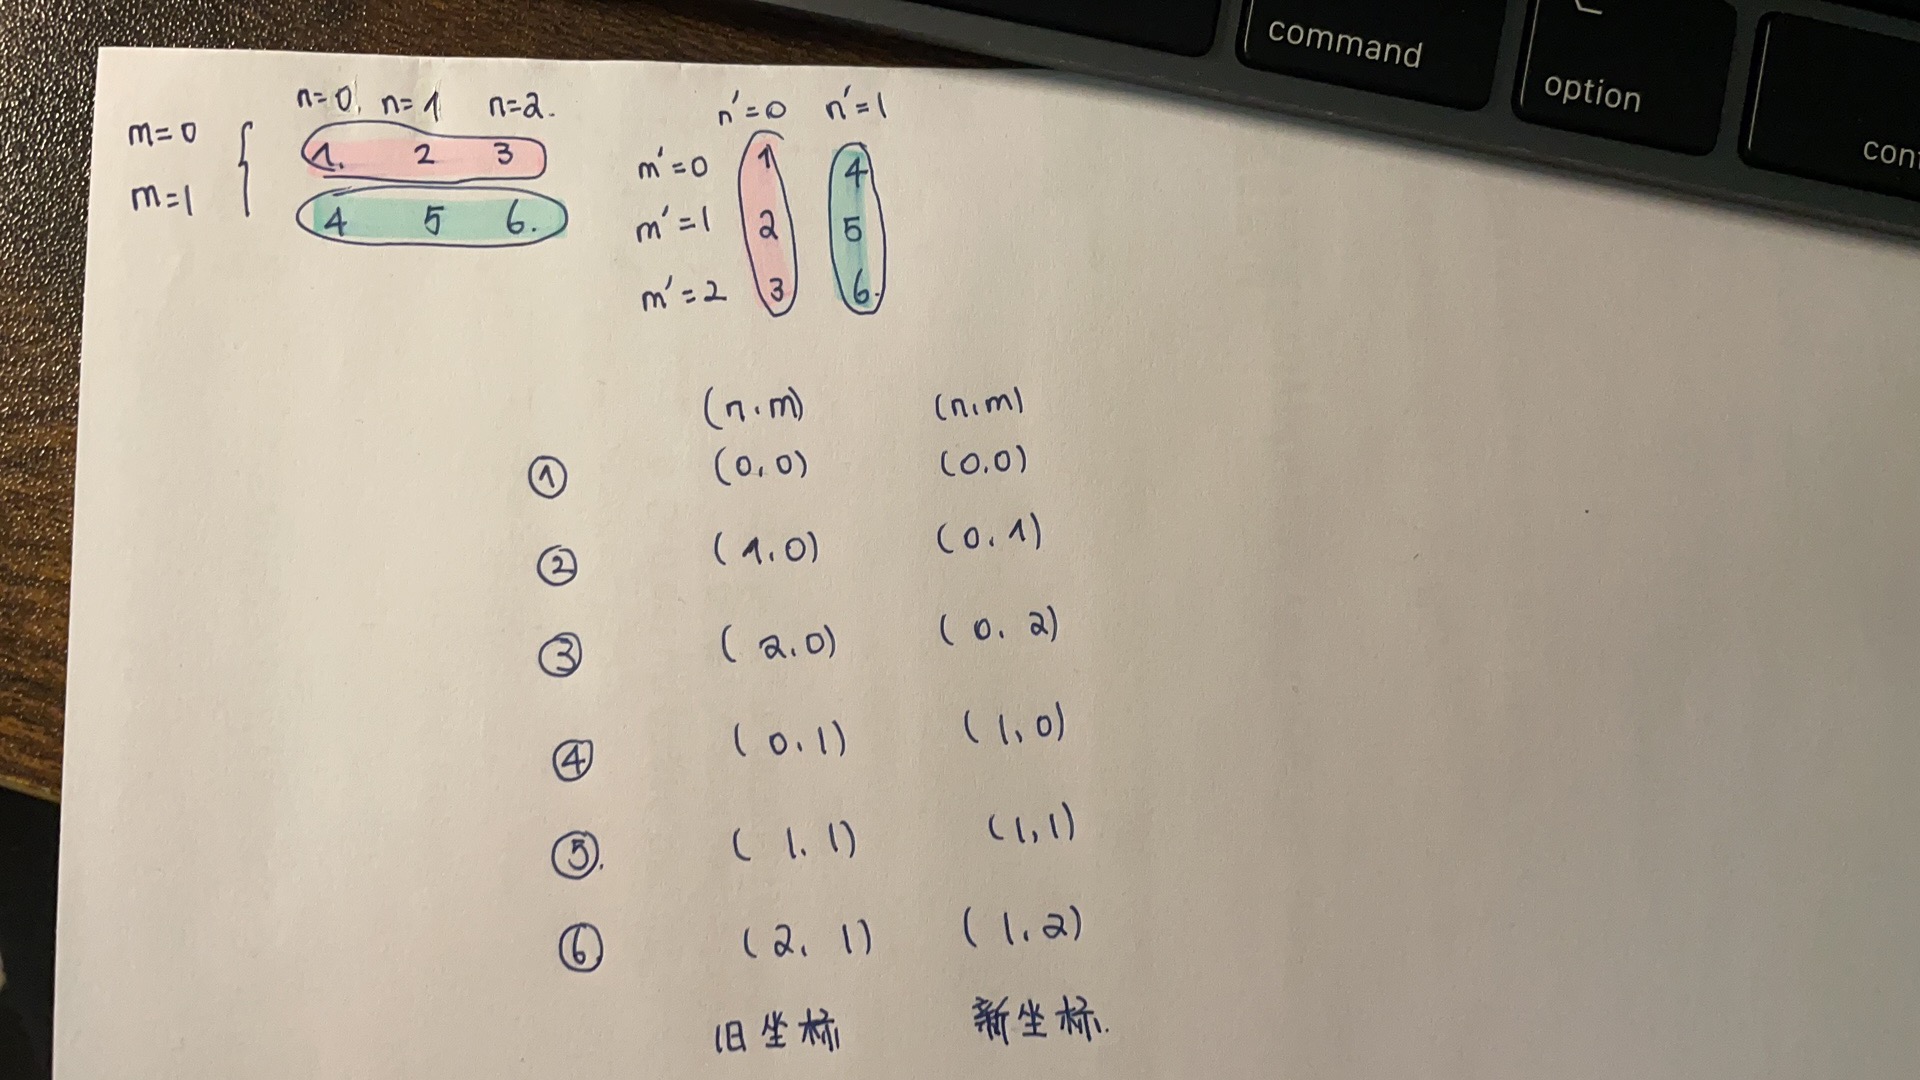 command
option
n=0, n=1 n=2.
m=0
m=1
1. 2 3
4 5 6.
n'=0 n'=1
m'=0 1 4
m'=1 2 5
m'=2 3 6.
(n.m) (n.m)
① (0,0) (0.0)
② (1.0) (0.1)
③ (2.0) (0.2)
④ (0.1) (1,0)
⑤. (1.1) (1,1)
⑥ (2.1) (1.2)
旧坐标 新坐标.